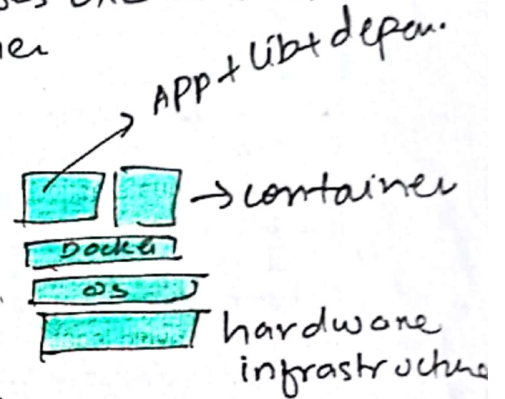 APP + Lib + depen.
→ container
Docker
OS
hardware
infrastructure